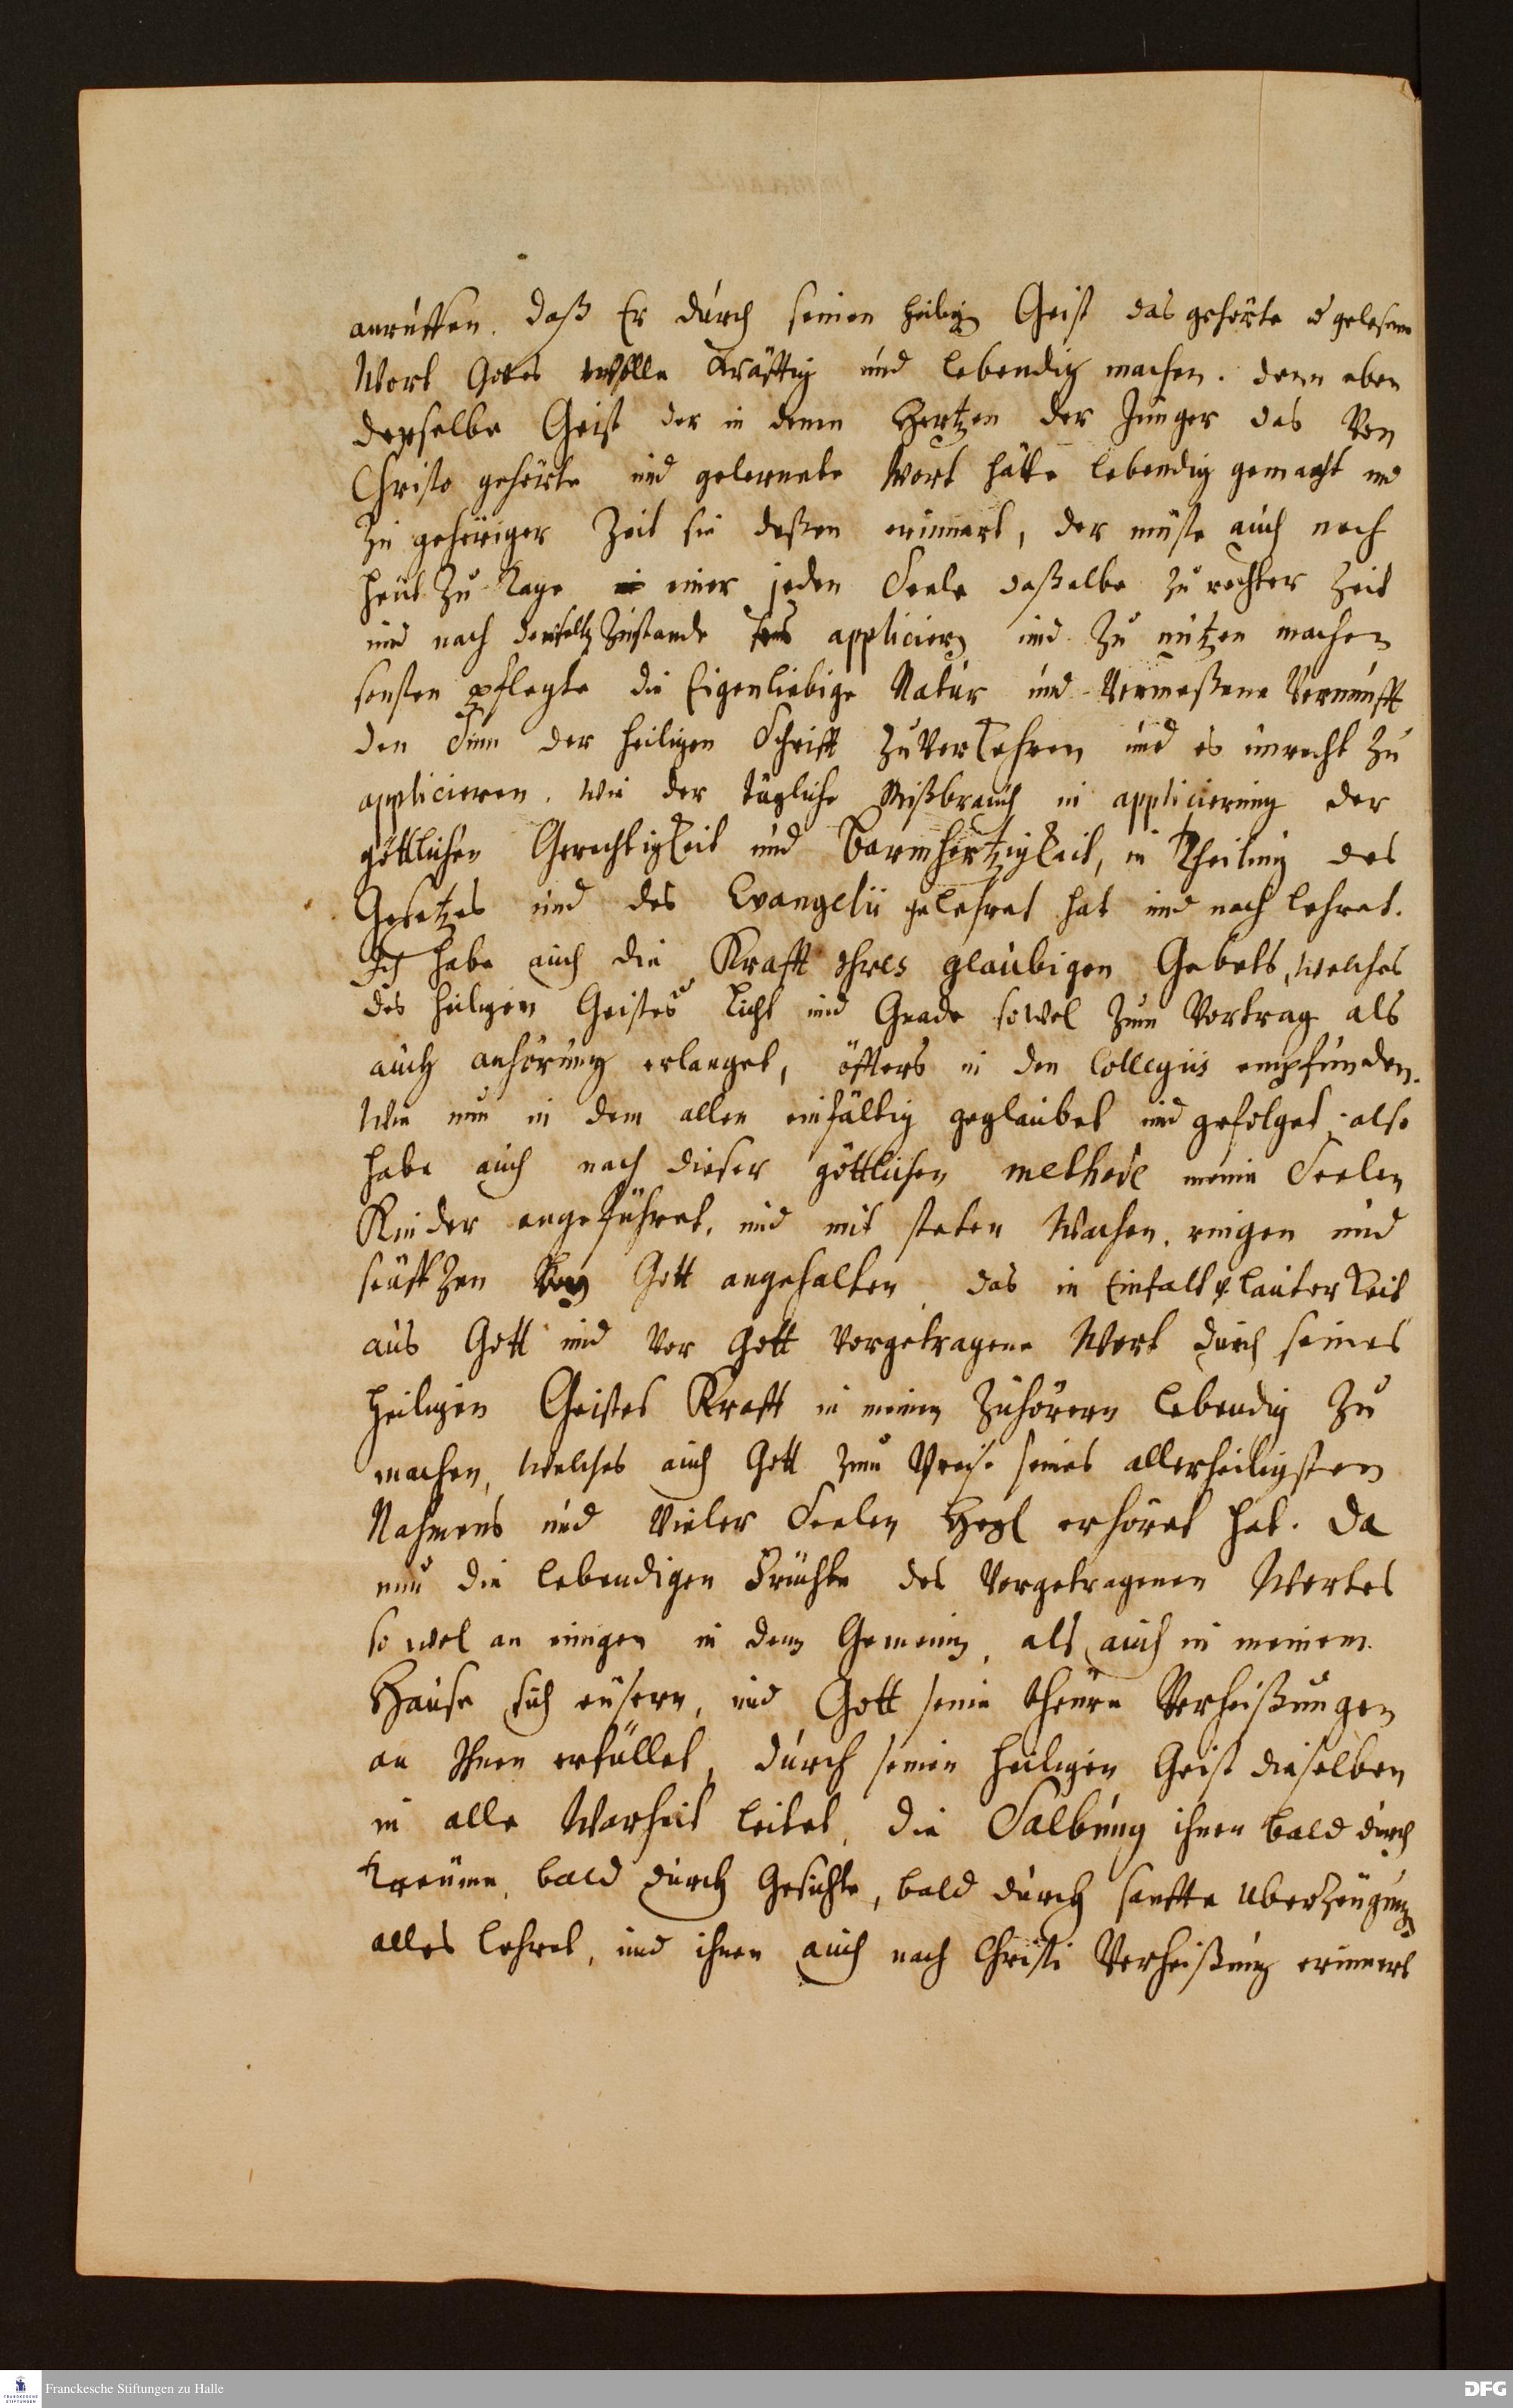 anrúffen. daß Er dúrch seinen heilig Geist das gehörte u gelesene
Wort Gottes wolle Kräfftig und lebendig machen. denn eben
derselbe Geist der in denen Hertzen der Jünger das Von
Christo gehörte und gelernete Wort hätte lebendig gemacht und
zu gehöriger Zeit sie deßen erinnert, der müste auch noch
heut zu Tage in einer jeden Seele daßelbe zu rechter Zeit
und nach Zustande applicieren und zu nutzen machen
sonsten pflegte die Eigenliebige Natúr und Vermeßene Vernunfft
den Sinn der heiligen Schrifft zu Verkehren und es unrecht zu
applicieren. wie der tägliche Mißbrauch in applicierung der
göttlichen Gerechtigkeit und Barmhertzigkeit, in Theilung des
Gesetzes und des Evangelii gelehret hat und noch lehret.
Ich habe auch die Krafft Ihres glaubigen Gebets, welches
des heiligen Geistes Licht und Gnade sowol zum Vortrag als
auch anhörung erlanget, öffters in den Collegiis empfunden.
Wie nun in dem allen einfältig geglaubet und gefolget, also
habe auch nach dieser göttlichen methode meine Seelen
Kinder angeführet, und mit steten Wachen, ringen und
seuffzen bey Gott angehalten das in Einfalt & lauterkeit
aus Gott und Vor Gott Vorgetragene Wort durch seines
heiligen Geistes Krafft in meinen Zuhörern lebendig zu
machen, welches auch Gott zum Preise seines allerheiligsten
Nahmens und Vieler Seelen Heyl erhöret hat. Da
nun die lebendigen Früchte des Vorgetragenen Wortes
so wol an einigen in dem Gemeinen, als auch in meinem
Hause sich eusern, und Gott seine theure Verheißungen
an Ihnen erfüllet, durch seinen heiligen Geist dieselben
in alle Warheit leitet, die Salbúng ihnen bald durch
Treume, bald durch Gesichte, bald durch sanffte Uberzeugung
alles lehret, und ihnen auch nach Christi Verheißung erinnert
Franckesche Stiftungen zu Halle
DFG